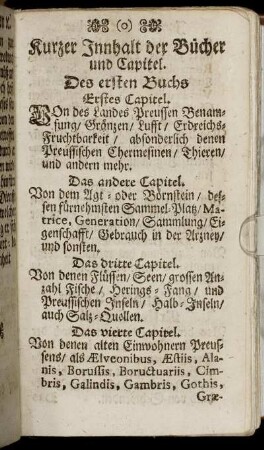 (o)
Kurzer Innhalt der Bücher
und Capitel.
Des ersten Buchs
Erstes Capitel.
VOn des Landes Preussen Benam-
sung/ Gräntzen/ Lufft/ Erdreichs-
Fruchtbarkeit/ absonderlich denen
Preussischen Chermesinen/ Thieren/
und andern mehr.
Das andere Capitel.
Von dem Agt- oder Börnstein/ des-
sen fürnehmsten Sammel-Platz/ Ma-
trice, Generation, Sammlung/ Ei-
genschafft/ Gebrauch in der Artzney/
und sonsten.
Das dritte Capitel.
Von denen Flüssen/ Seen/ grossen An-
zahl Fische/ Herings-Fang/ und
Preussischen Inseln/ Halb-Inseln/
auch Saltz-Quollen.
Das vierte Capitel.
Von denen alten Einwohnern Preus-
sens/ als Ælveonibus, Æstiis, Ala-
nis, Borussis, Boructuariis, Cim-
bris, Galindis, Gambris, Gothis,
Græ-